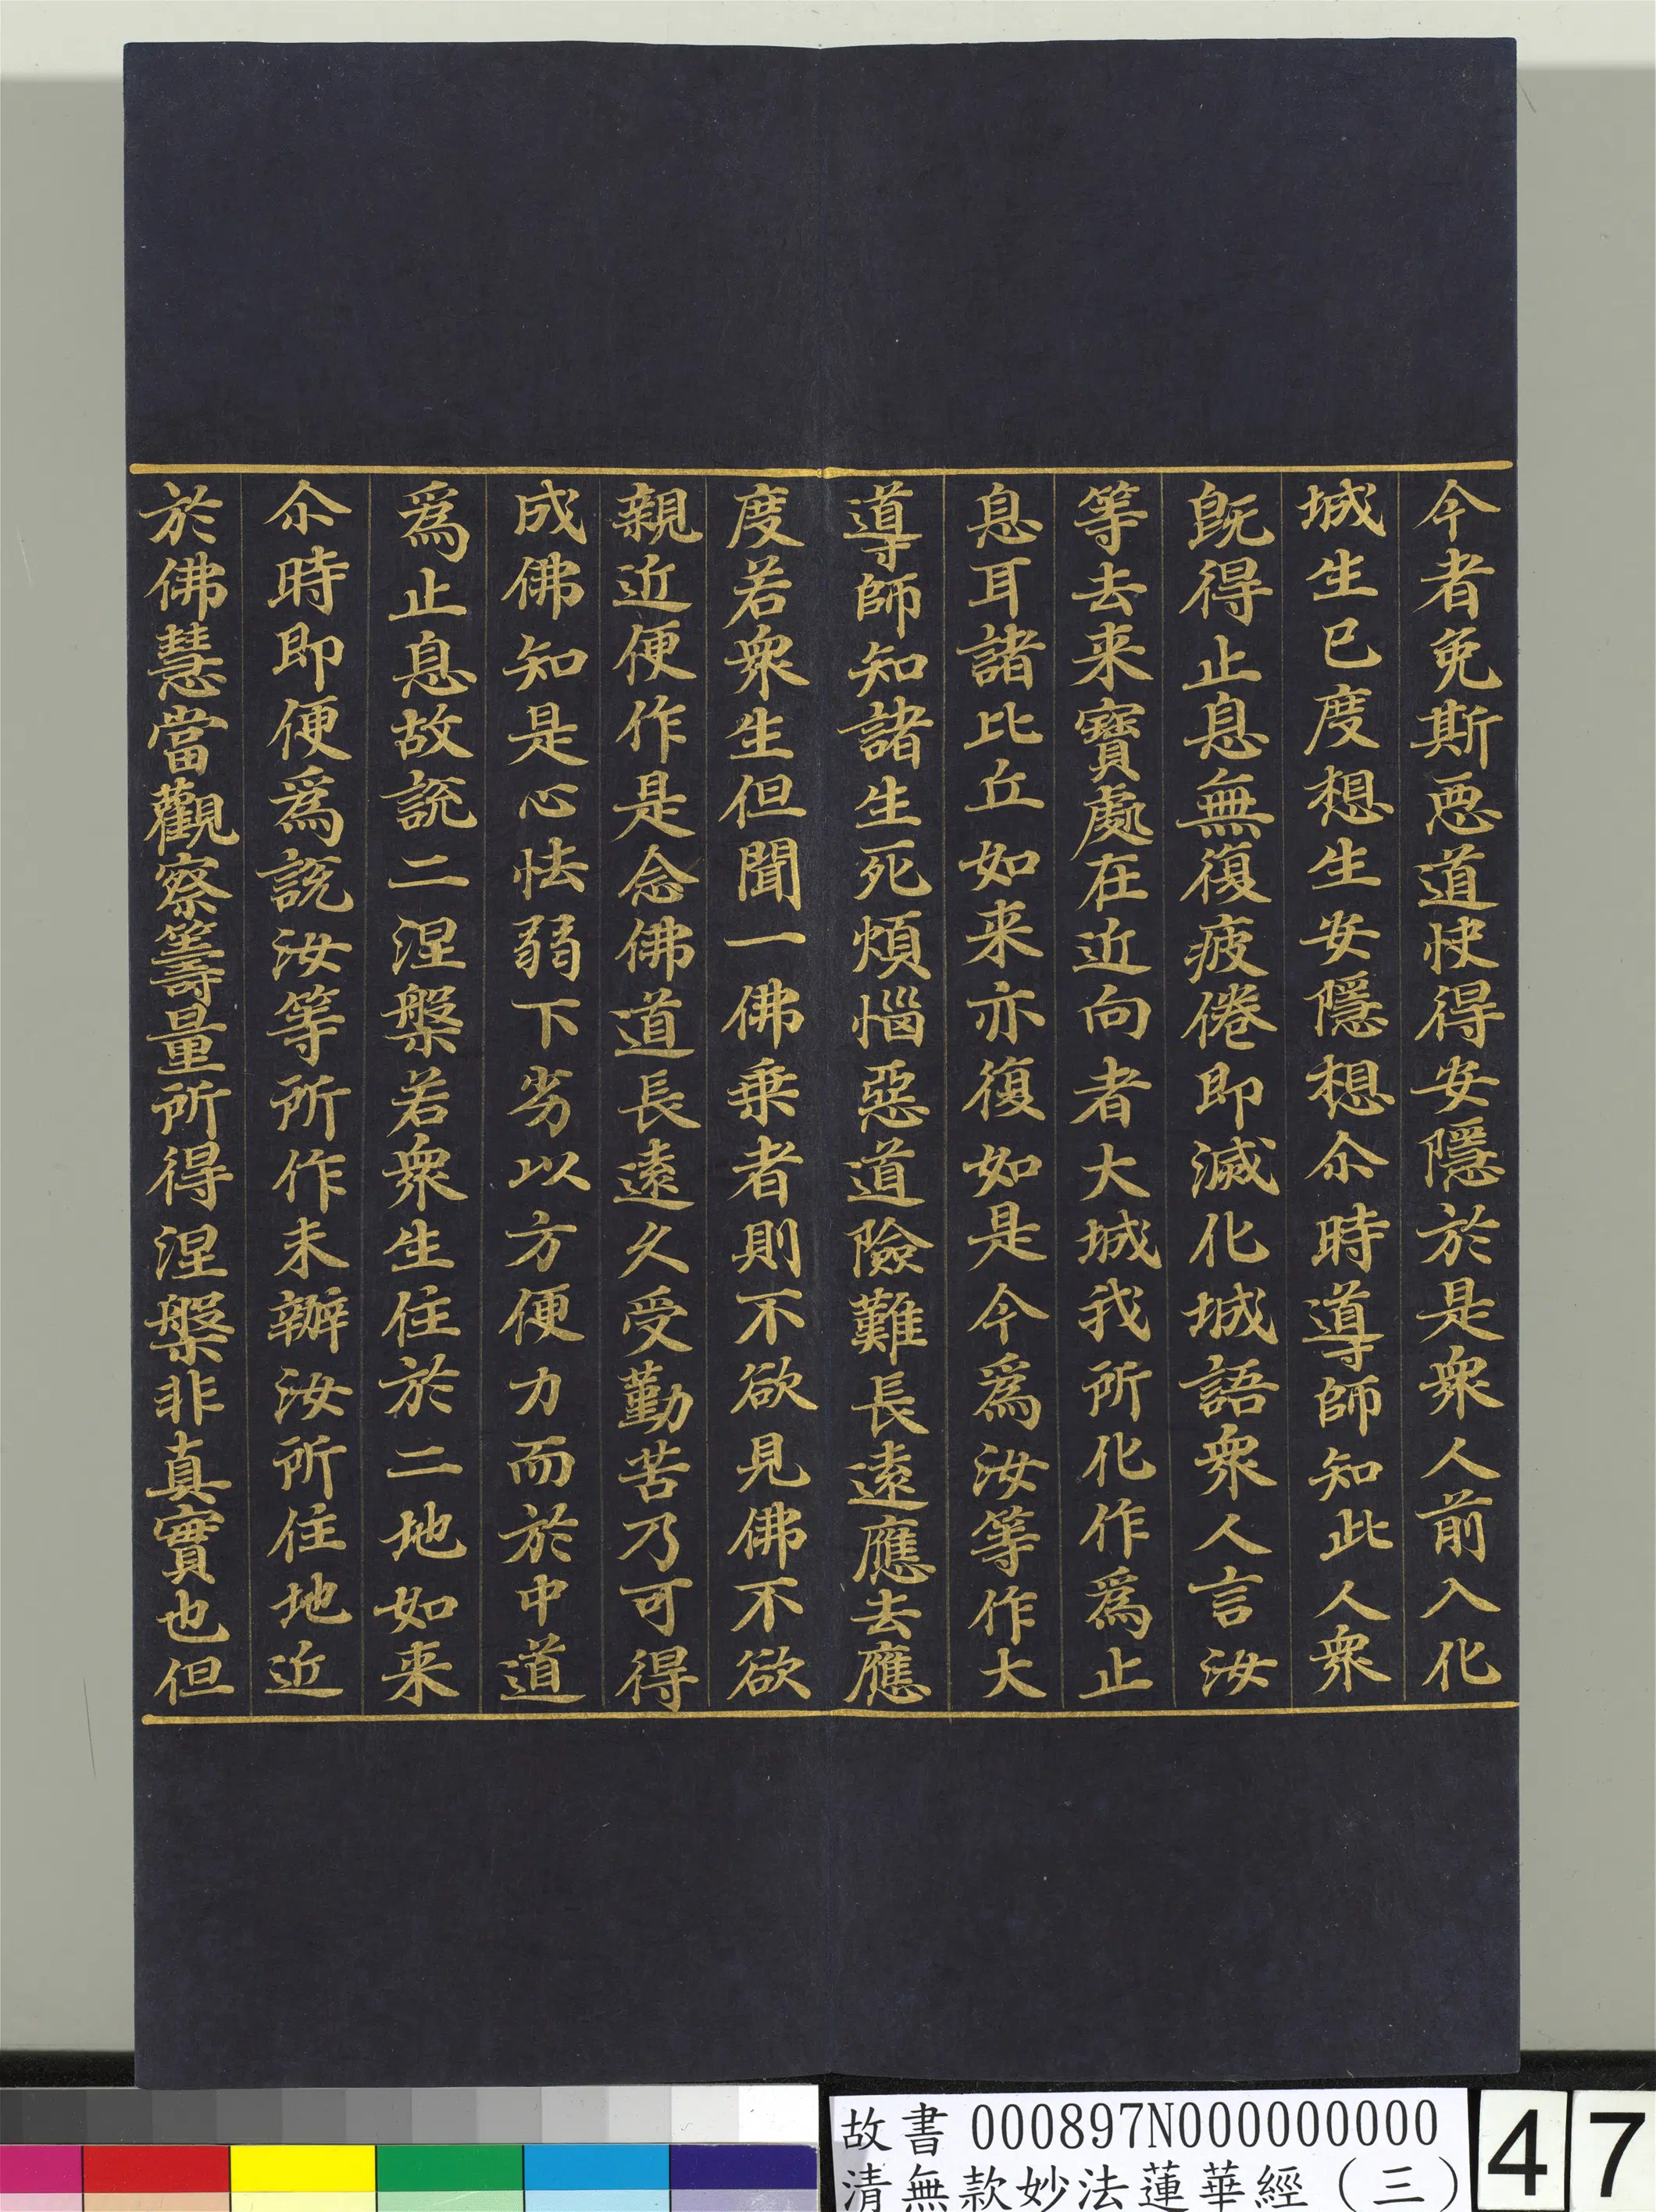 今者免斯惡道快得安隱於是衆人前入化
城生已度想生安隱想尒時導師知此人衆
旣得止息無復疲倦即滅化城語衆人言汝
等去来寶處在近向者大城我所化作爲止
息耳諸比丘如来亦復如是今爲汝等作大
導師知諸生死煩惱惡道險難長遠應去應
度若衆生但聞一佛乗者則不欲見佛不欲
親近便作是念佛道長遠久受勤苦乃可得
成佛知是心怯弱下劣以方便力而於中道
爲止息故說二涅槃若衆生住於二地如来
尒時即便爲說汝等所作未辦汝所住地近
於佛慧當觀察籌量所得涅槃非真實也但
故書 000897N000000000
清無款妙法蓮華經（三）
47